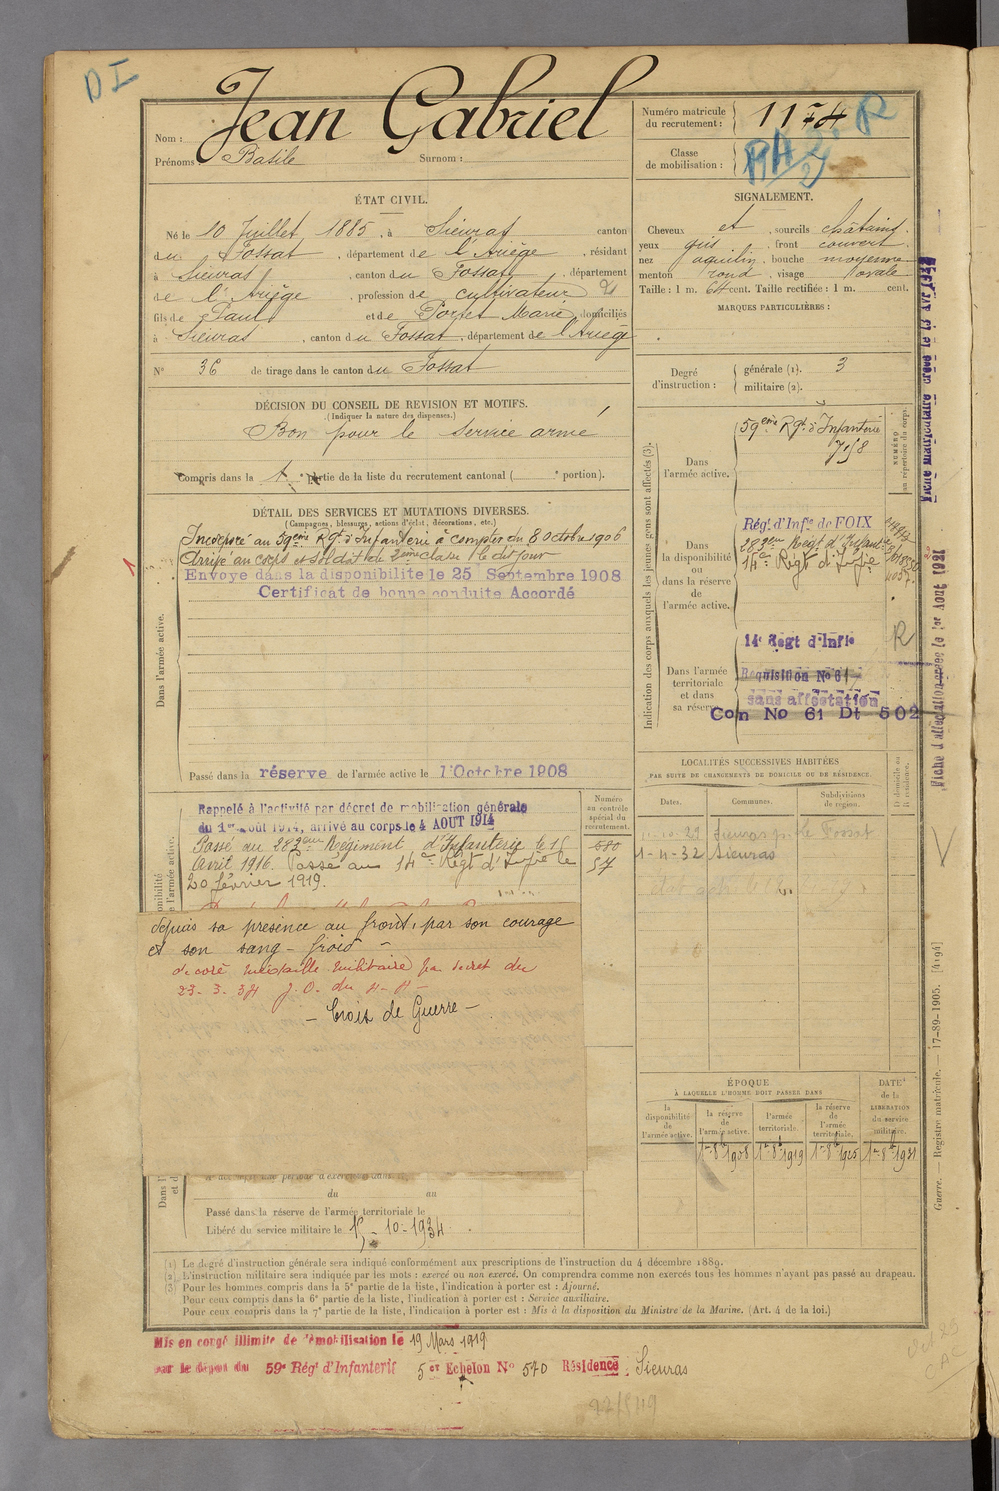 DI
Nom : Jean Gabriel
Prénoms : Basile Surnom :
Numéro matricule du recrutement : 1174
R
Classe de mobilisation :
RA
ÉTAT CIVIL.
Né le 10 Juillet 1885, à Sieuras canton
du Fossat, département de l'Ariège, résidant
à Sieuras, canton du Fossat, département
de l'Ariège, profession de cultivateur
fils de Paul et de Portet Marie domiciliés
à Sieuras, canton du Fossat, département de l'Ariège
N° 36 de tirage dans le canton du Fossat
DÉCISION DU CONSEIL DE REVISION ET MOTIFS.
(Indiquer la nature des dispenses.)
Bon pour le service armé
Compris dans la 1e partie de la liste du recrutement cantonal ( e portion).
SIGNALEMENT.
Cheveux et , sourcils châtains.
yeux gris , front couvert
nez aquilin, bouche moyenne
menton rond, visage ovale
Taille : 1 m. 64 cent. Taille rectifiée : 1 m. cent.
MARQUES PARTICULIÈRES :
Degré d'instruction :
générale (1). 3
militaire (2).
DÉTAIL DES SERVICES ET MUTATIONS DIVERSES.
(Campagnes, blessures, actions d'éclat, décorations, etc.)
Dans l'armée active.
Incorporé au 59ème Rgt d'Infanterie à compter du 8 octobre 1906
Arrivé au corps et soldat de 2ème classe le dit jour
Envoyé dans la disponibilité le 25 Septembre 1908
Certificat de bonne conduite Accordé
Passé dans la réserve de l'armée active le 1 Octobre 1908
Rappelé à l'activité par décret de mobilisation générale
du 1er août 1914, arrivé au corps le 4 AOUT 1914
Passé au 283ème Régiment d'Infanterie le 16
Avril 1916. Passé au 14e Régt d'Infie le
20 février 1919.
Numéro au contrôle spécial du recrutement.
680
57
depuis sa présence au front, par son courage
et son sang-froid -
décoré médaille militaire par décret du
23-3-34 J.O. du
- Croix de Guerre -
du au
Passé dans la réserve de l'armée territoriale le
Libéré du service militaire le 15-10-1934.
Indication des corps auxquels les jeunes gens sont affectés (3).
NUMÉRO au répertoire du corps.
Dans l'armée active.
59ème Rgt d'Infanterie
Dans la disponibilité ou dans la réserve de l'armée active.
Régt d'Infie de FOIX
283ème Régt d'Infante
14e Régt d'Infie
Dans l'armée territoriale et dans sa réserve.
14e Regt d'Infie
R
Requisition No 61
sans affectation
Con No 61 Dt 502
LOCALITÉS SUCCESSIVES HABITÉES
PAR SUITE DE CHANGEMENTS DE DOMICILE OU DE RÉSIDENCE.
Dates. Communes. Subdivisions de région. D domicile ou R résidence.
Sieuras Le Fossat
1-4-32 Sieuras
ÉPOQUE
À LAQUELLE L'HOMME DOIT PASSER DANS
la disponibilité de l'armée active.
la réserve de l'armée active.
l'armée territoriale.
la réserve de l'armée territoriale.
DATE de la LIBÉRATION du service militaire.
1er 8bre 1908 1er 8bre 1919 1er 8bre 1925 1er 8bre 1931
Fiche d'affectation créée le 1er Aout 1921
Guerre. — Registre matricule. — 17-89-1905. [4194]
(1) Le degré d'instruction générale sera indiqué conformément aux prescriptions de l'instruction du 4 décembre 1889.
(2) L'instruction militaire sera indiquée par les mots : exercé ou non exercé. On comprendra comme non exercés tous les hommes n'ayant pas passé au drapeau.
(3) Pour les hommes compris dans la 5e partie de la liste, l'indication à porter est : Ajourné.
Pour ceux compris dans la 6e partie de la liste, l'indication à porter est : Service auxiliaire.
Pour ceux compris dans la 7e partie de la liste, l'indication à porter est : Mis à la disposition du Ministre de la Marine. (Art. 4 de la loi.)
Mis en congé illimité de démobilisation le 19 Mars 1919
par le dépôt du 59e Régt d'Infanterie 5e Echelon No 570 Résidence : Sieuras
CAC